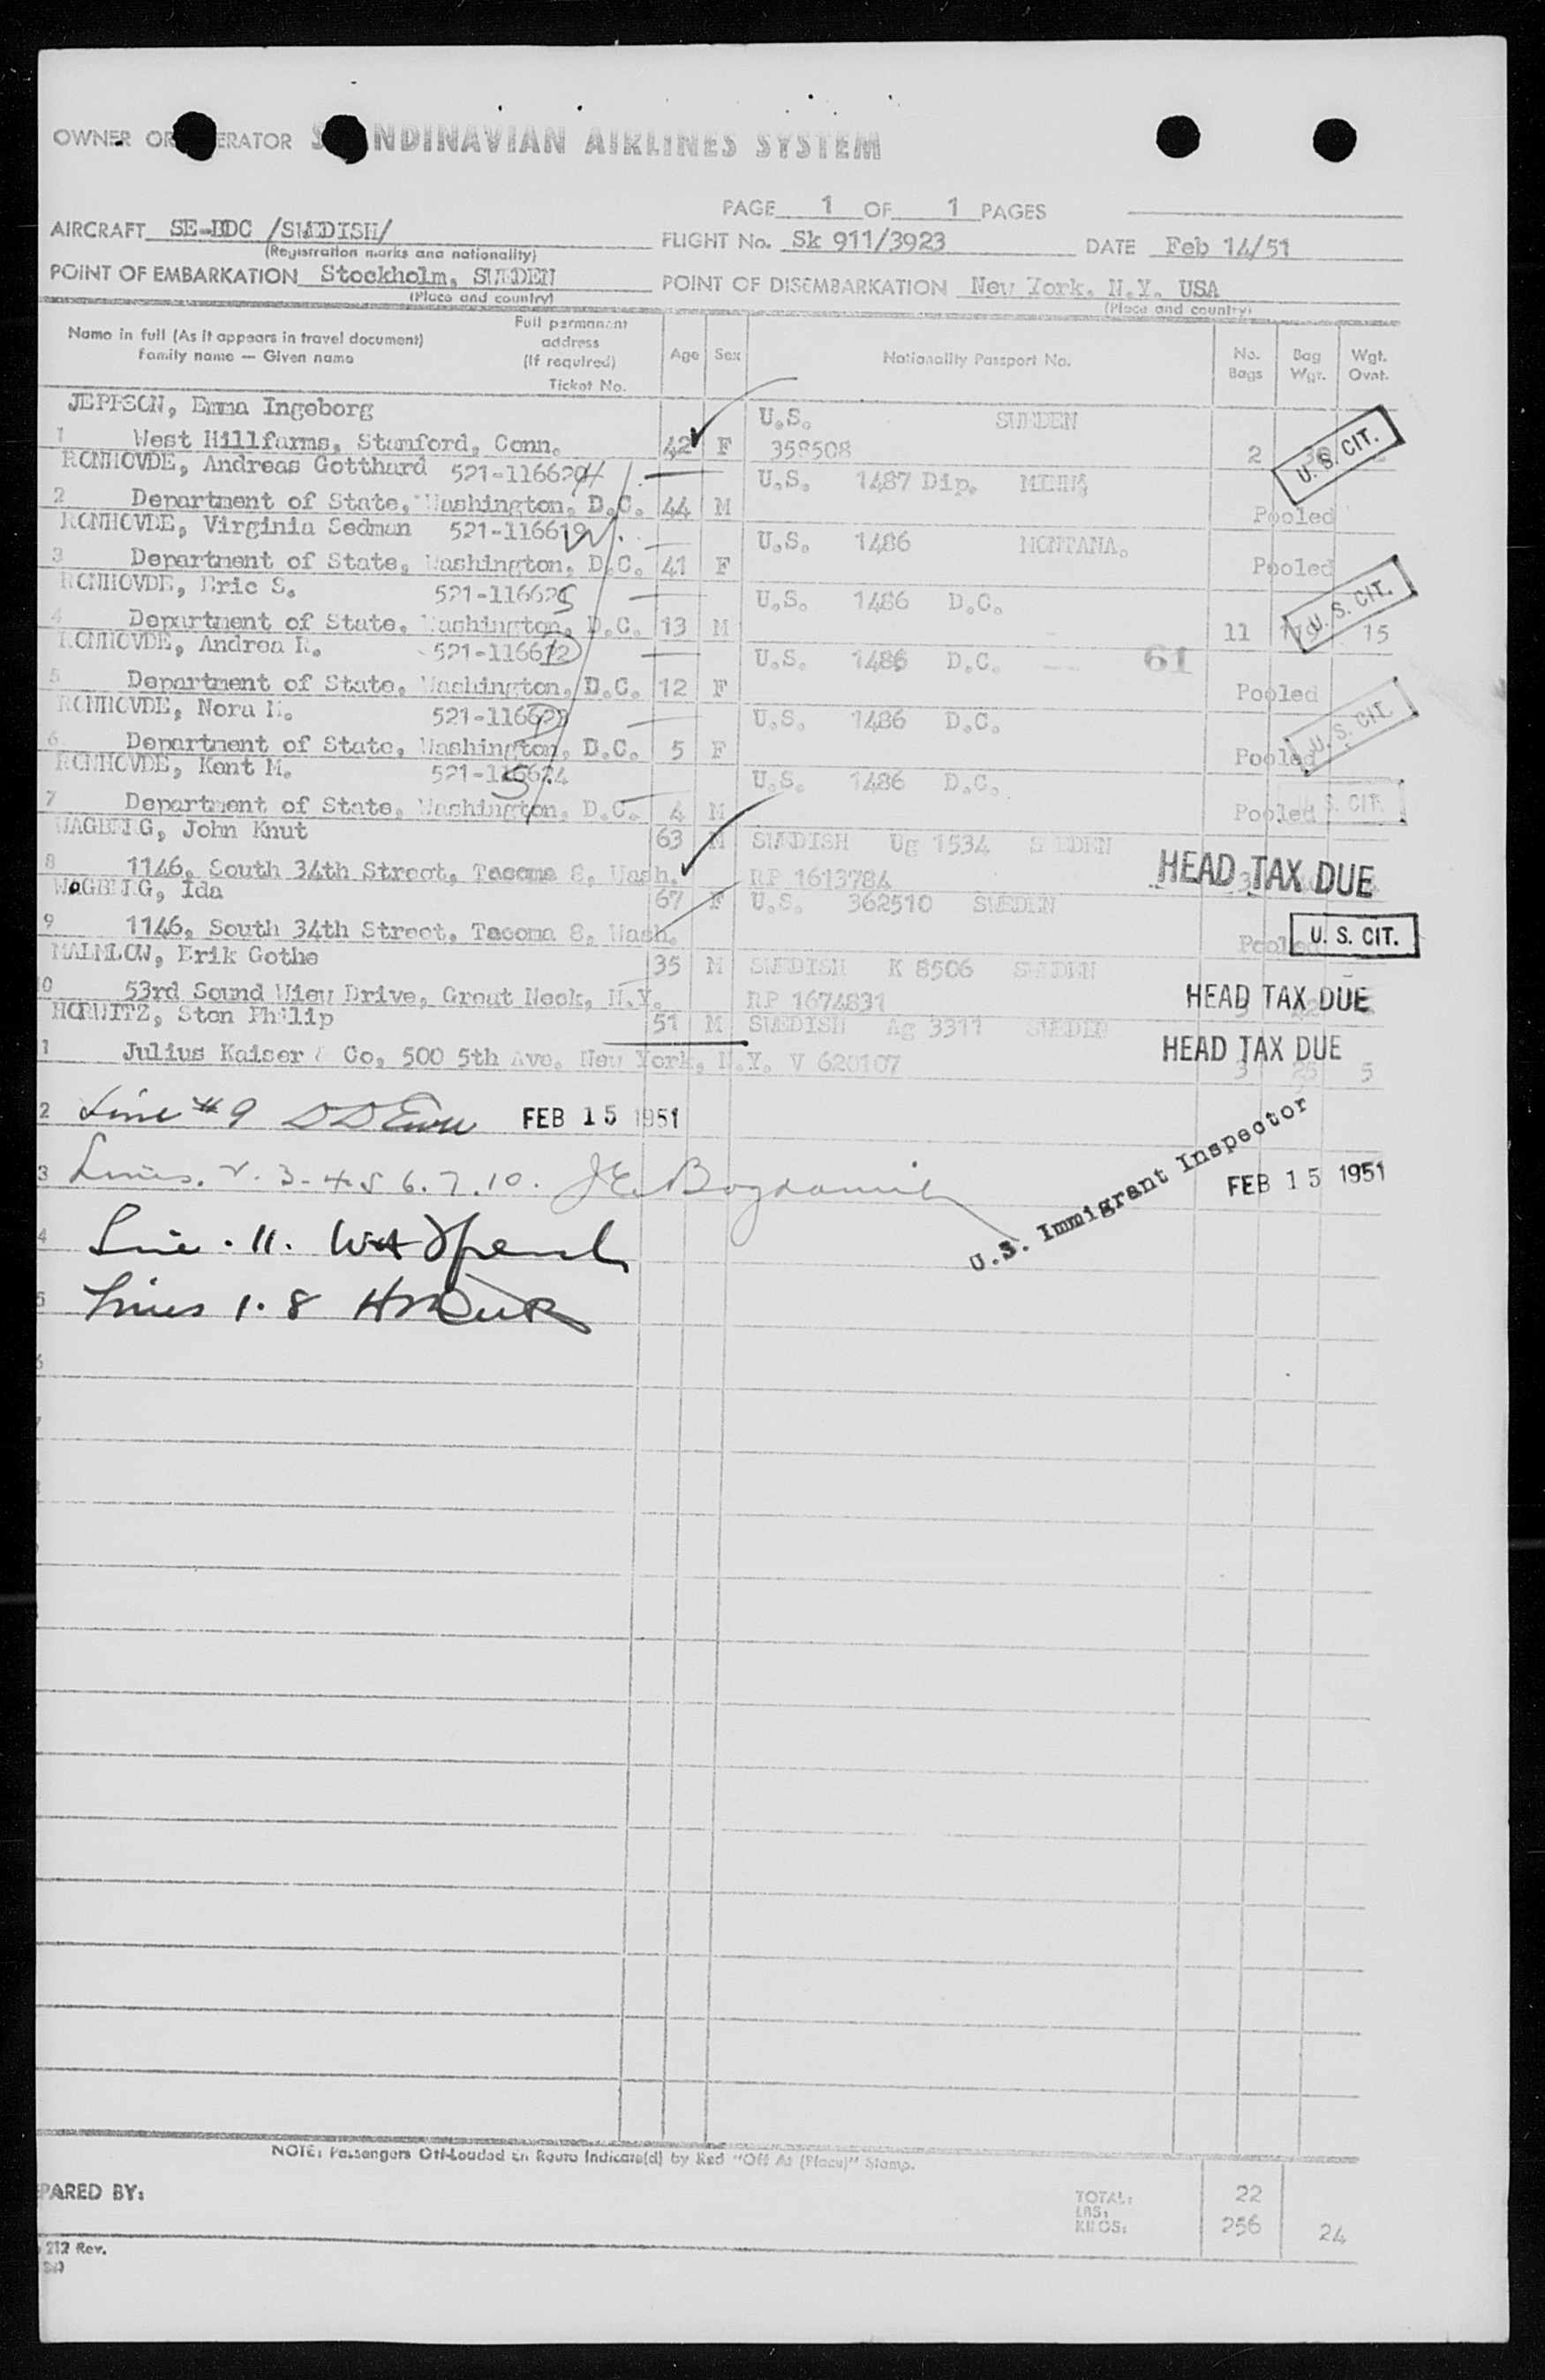 OWNER OR ERATOR S NDINAVIAN AIRLINES SYSTEM
PAGE 1 OF 1 PAGES
AIRCRAFT SE-BDC /SWEDISH/ FLIGHT No. Sk 911/3923 DATE Feb 14/51
(Registration marks and nationality)
POINT OF EMBARKATION Stockholm, SWEDEN POINT OF DISEMBARKATION New York, N.Y. USA
(Place and country) (Place and country)
Name in full (As it appears in travel document) Family name — Given name Full permanent address (If required) Ticket No. Age Sex Nationality Passport No. No. Bags Bag Wgt. Wgt. Ovnt.
JEPPSON, Emma Ingeborg U.S. SWEDEN
1 West Hillfarms, Stamford, Conn. 42 F 358508 2 U.S. CIT.
RONHOVDE, Andreas Gotthard 521-116620 U.S. 1487 Dip. MINN
2 Department of State, Washington, D.C. 44 M Pooled
RONHOVDE, Virginia Sedman 521-116619 U.S. 1486 MONTANA.
3 Department of State, Washington, D.C. 41 F Pooled
RONHOVDE, Eric S. 521-11662 U.S. 1486 D.C. U.S. CIT.
4 Department of State, Washington, D.C. 13 M 11 15
RONHOVDE, Andrea R. 521-11662 U.S. 1486 D.C. 61
5 Department of State, Washington, D.C. 12 F Pooled
RONHOVDE, Nora M. 521-11662 U.S. 1486 D.C. U.S. CIT.
6 Department of State, Washington, D.C. 5 F Pooled
RONHOVDE, Kent M. 521-116624 U.S. 1486 D.C.
7 Department of State, Washington, D.C. 4 M Pooled S. CIT.
WAGBERG, John Knut 63 M SWEDISH Ug 1534 SWEDEN
8 1146, South 34th Street, Tacoma 8, Wash. RP 1613784 HEAD TAX DUE
WAGBERG, Ida 67 F U.S. 362510 SWEDEN
9 1146, South 34th Street, Tacoma 8, Wash. Pooled U.S. CIT.
MALMLOW, Erik Gothe 35 M SWEDISH K 8506 SWEDEN
0 53rd Sound View Drive, Great Neck, N.Y. RP 1674831 HEAD TAX DUE
HORWITZ, Sten Philip 51 M SWEDISH Ag 3311 SWEDEN
1 Julius Kaiser & Co, 500 5th Ave. New York, N.Y. V 620107 HEAD TAX DUE 3 25 5
2 Line #9 FEB 15 1951
3 Lines. 2. 3-4-5 6. 7. 10. U.S. Immigrant Inspector FEB 15 1951
4 Line . 11.
5 Lines 1.8
NOTE: Passengers Off-Loaded En Route Indicate(d) by Red "Off At (Place)" Stamp.
PARED BY: TOTAL: 22
LBS:
KILOS: 256 24
212 Rev.